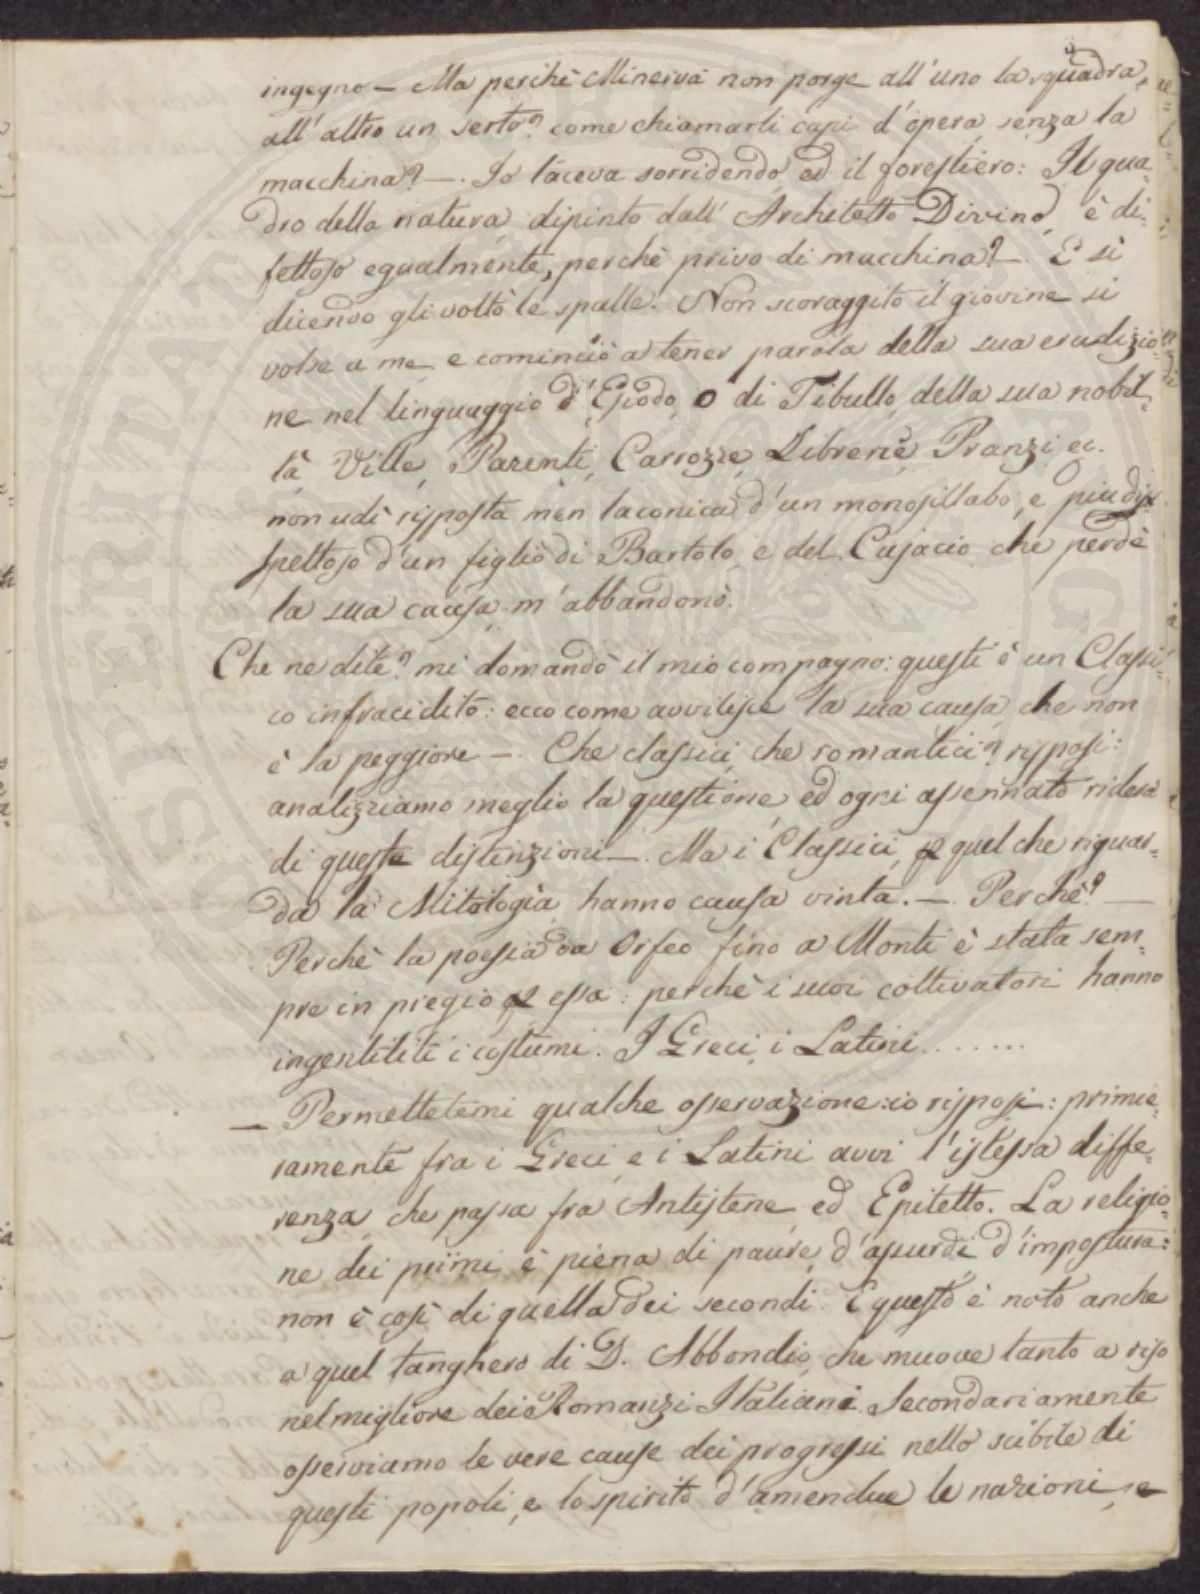 3
ingegno — Ma perchè Minerva non porge all'uno la squadra,
all'altro un serto? come chiamarli capi d'opera senza la
macchina? —. Io taceva sorridendo, ed il forestiero: Il qua=
dro della natura, dipinto dall'Architetto Divino, è di=
fettoso egualmente, perchè privo di macchina? —. E sì
dicendo gli voltò le spalle. Non scoraggito il giovine si
volse a me, e cominciò a tener parola della sua erudizio=
ne nel linguaggio d'Esiodo, o di Tibullo, della sua nobil=
tà, Ville, Parenti, Carrozze, Librerie, Pranzi ec.
non udì risposta men laconica d'un monosillabo, e più dis
spettoso d'un figlio di Bartolo, e del Cujacio che perdè
la sua causa, m'abbandonò.
Che ne dite? mi domandò il mio compagno: questi è un Classi=
co infracidito: ecco come avvilisce la sua causa, che non
è la peggiore —. Che classici, che romantici? risposi:
analizziamo meglio la questione, ed ogni assennato riderà
di queste distinzioni —. Ma i Classici, p quel che riguar=
da la Mitologia, hanno causa vinta. — Perchè? —
Perchè la poesia da Orfeo fino a Monti è stata sem=
pre in pregio p essa: perchè i suoi coltivatori hanno
ingentiliti i costumi. I Greci, i Latini........
— Permettetemi qualche osservazione: io risposi: primie=
ramente fra i Greci, e i Latini avvi l'istessa diffe=
renza, che passa fra Antistene, ed Epitetto. La religio=
ne dei primi è piena di paure, d'assurdi, d'impostura:
non è così di quella dei secondi. E questo è noto anche
a quel tanghero di D. Abbondio, che muove tanto a riso
nel migliore dei Romanzi Italiani. Secondariamente
osserviamo le vere cause dei progressi nello scibile di
questi popoli, e lo spirito d'amendue le nazioni, e